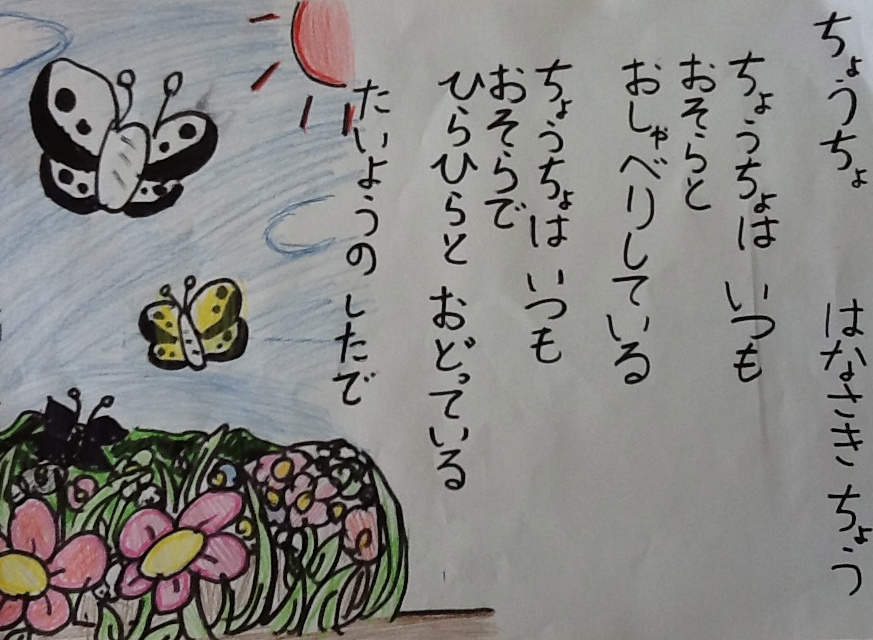 ちょうちょ はなさき ちょう
ちょうちょは いつも
おそらと
おしゃべりしている
ちょうちょは いつも
おそらで
ひらひらと おどっている
たいようの したで